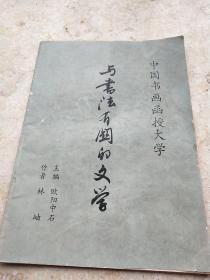 中国书画函授大学
与书法有関的文学
主编 欧阳中石
作者 林岫